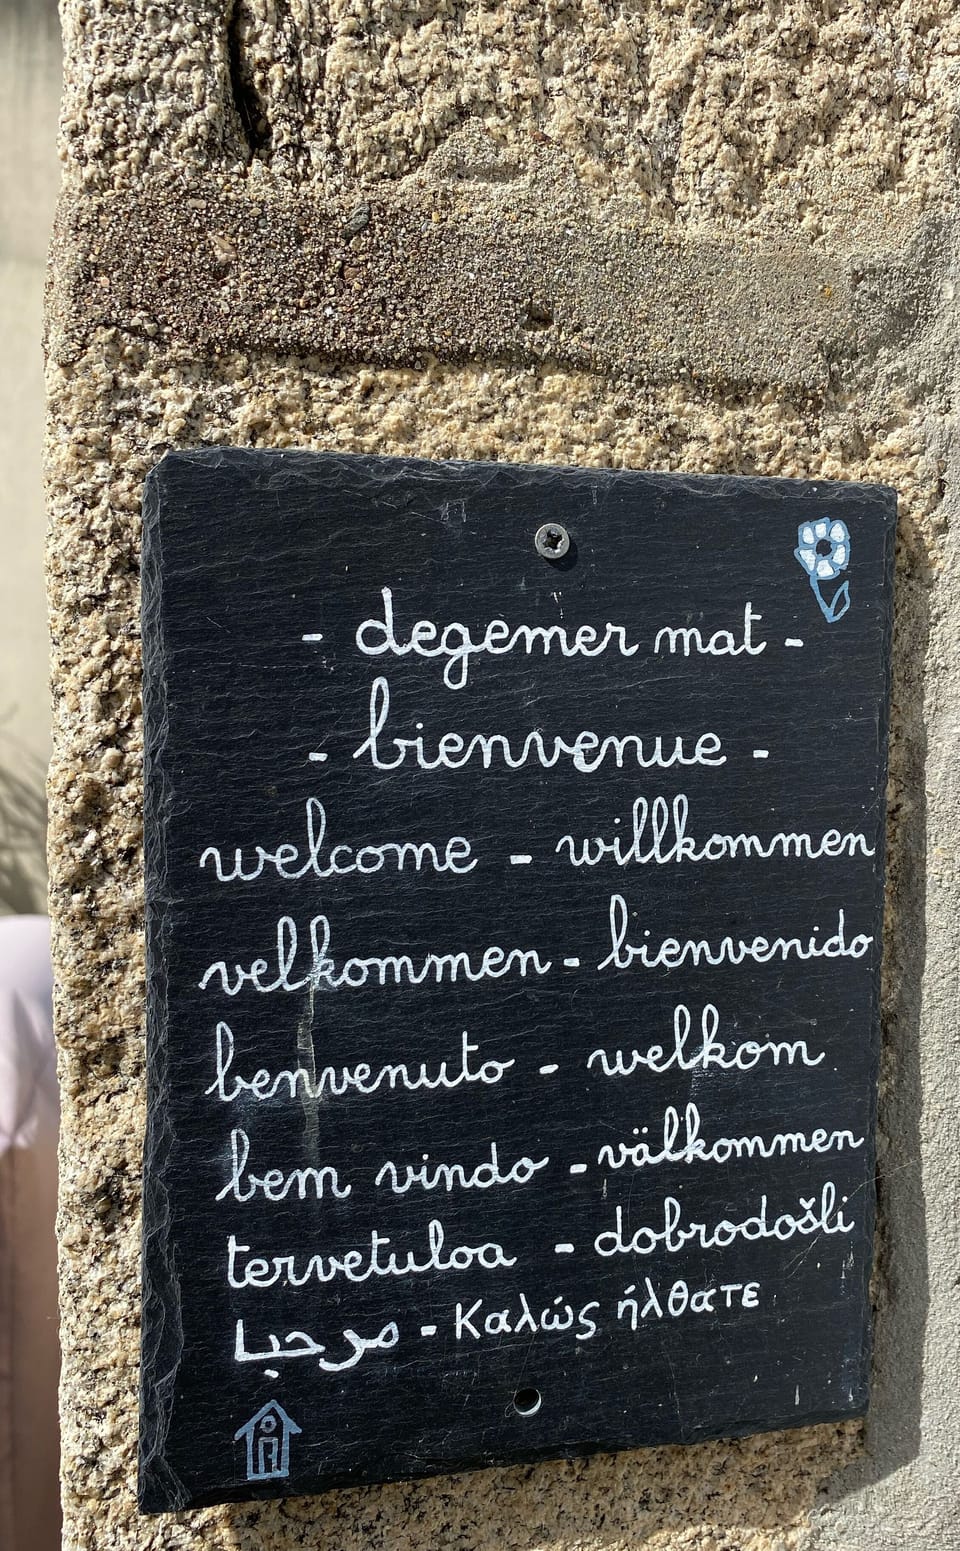 - degemer mat -
- bienvenue -
welcome - willkommen
velkommen - bienvenido
benvenuto - welkom
bem vindo - välkommen
tervetuloa - dobrodošli
مرحبا - Καλώς ήλθατε